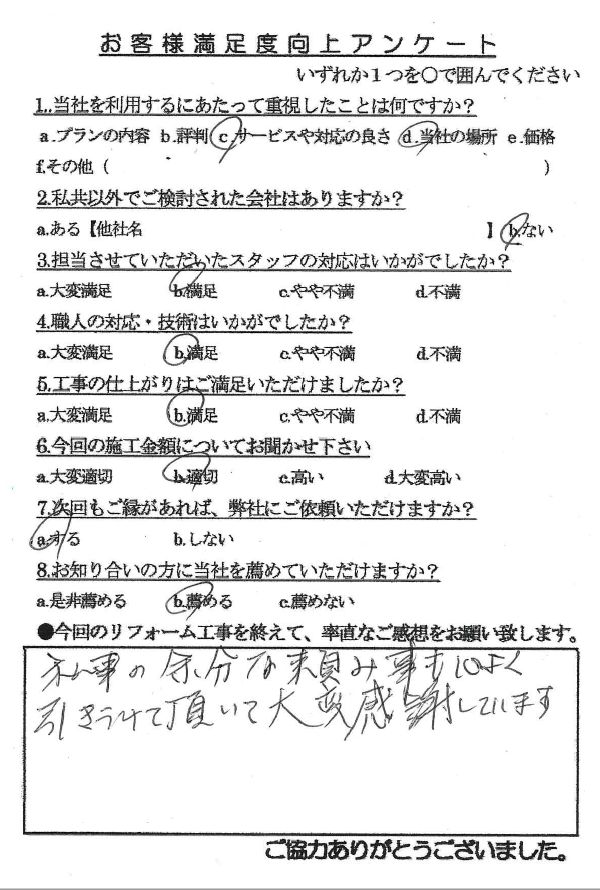 お客様満足度向上アンケート
いずれか１つを〇で囲んでください
1..当社を利用するにあたって重視したことは何ですか？
a.プランの内容 b.評判 c.サービスや対応の良さ d.当社の場所 e.価格
f.その他（　　　　　　　　　　）
2.私共以外でご検討された会社はありますか？
a.ある【他社名　　　　　　　　　　】 b.ない
3.担当させていただいたスタッフの対応はいかがでしたか？
a.大変満足 b.満足 c.やや不満 d.不満
4.職人の対応・技術はいかがでしたか？
a.大変満足 b.満足 c.やや不満 d.不満
5.工事の仕上がりはご満足いただけましたか？
a.大変満足 b.満足 c.やや不満 d.不満
6.今回の施工金額についてお聞かせ下さい
a.大変適切 b.適切 c.高い d.大変高い
7.次回もご縁があれば、弊社にご依頼いただけますか？
a.する b.しない
8.お知り合いの方に当社を薦めていただけますか？
a.是非薦める b.薦める c.薦めない
●今回のリフォーム工事を終えて、率直なご感想をお願い致します。
私事の余分な頼み事も心よく
引きうけて頂いて大変感謝しています
ご協力ありがとうございました。